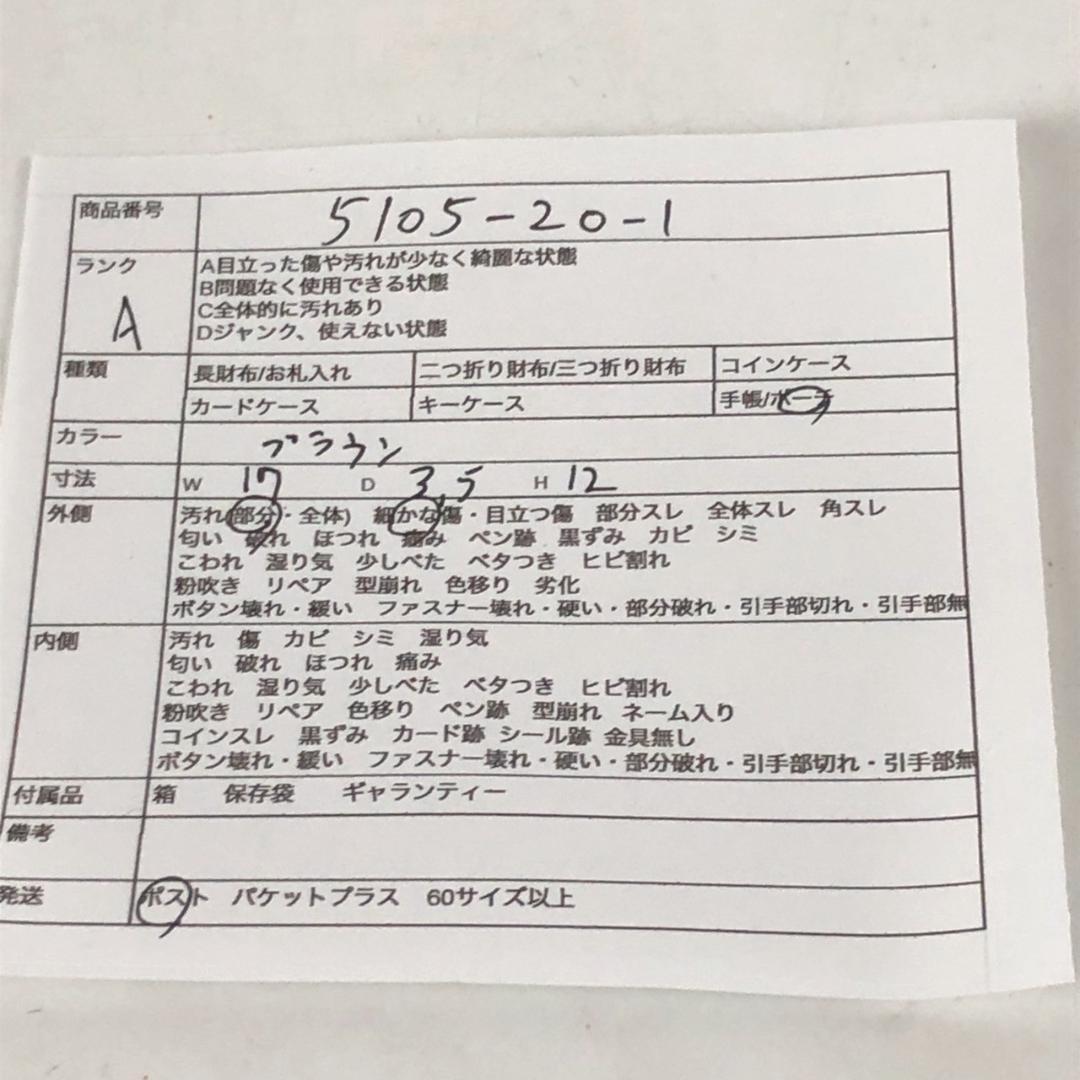 商品番号 5105-20-1
ランク A
A目立った傷や汚れが少なく綺麗な状態
B問題なく使用できる状態
C全体的に汚れあり
Dジャンク、使えない状態
種類 長財布/お札入れ 二つ折り財布/三つ折り財布 コインケース
カードケース キーケース 手帳/ポーチ
カラー ブラウン
寸法 W 17 D 3,5 H 12
外側 汚れ(部分・全体) 細かな傷・目立つ傷 部分スレ 全体スレ 角スレ
匂い 破れ ほつれ 痛み ペン跡 黒ずみ カビ シミ
こわれ 湿り気 少しべた ベタつき ヒビ割れ
粉吹き リペア 型崩れ 色移り 劣化
ボタン壊れ・緩い ファスナー壊れ・硬い・部分破れ・引手部切れ・引手部無
内側 汚れ 傷 カビ シミ 湿り気
匂い 破れ ほつれ 痛み
こわれ 湿り気 少しべた ベタつき ヒビ割れ
粉吹き リペア 色移り ペン跡 型崩れ ネーム入り
コインスレ 黒ずみ カード跡 シール跡 金具無し
ボタン壊れ・緩い ファスナー壊れ・硬い・部分破れ・引手部切れ・引手部無
付属品 箱 保存袋 ギャランティー
備考
発送 ポスト パケットプラス 60サイズ以上